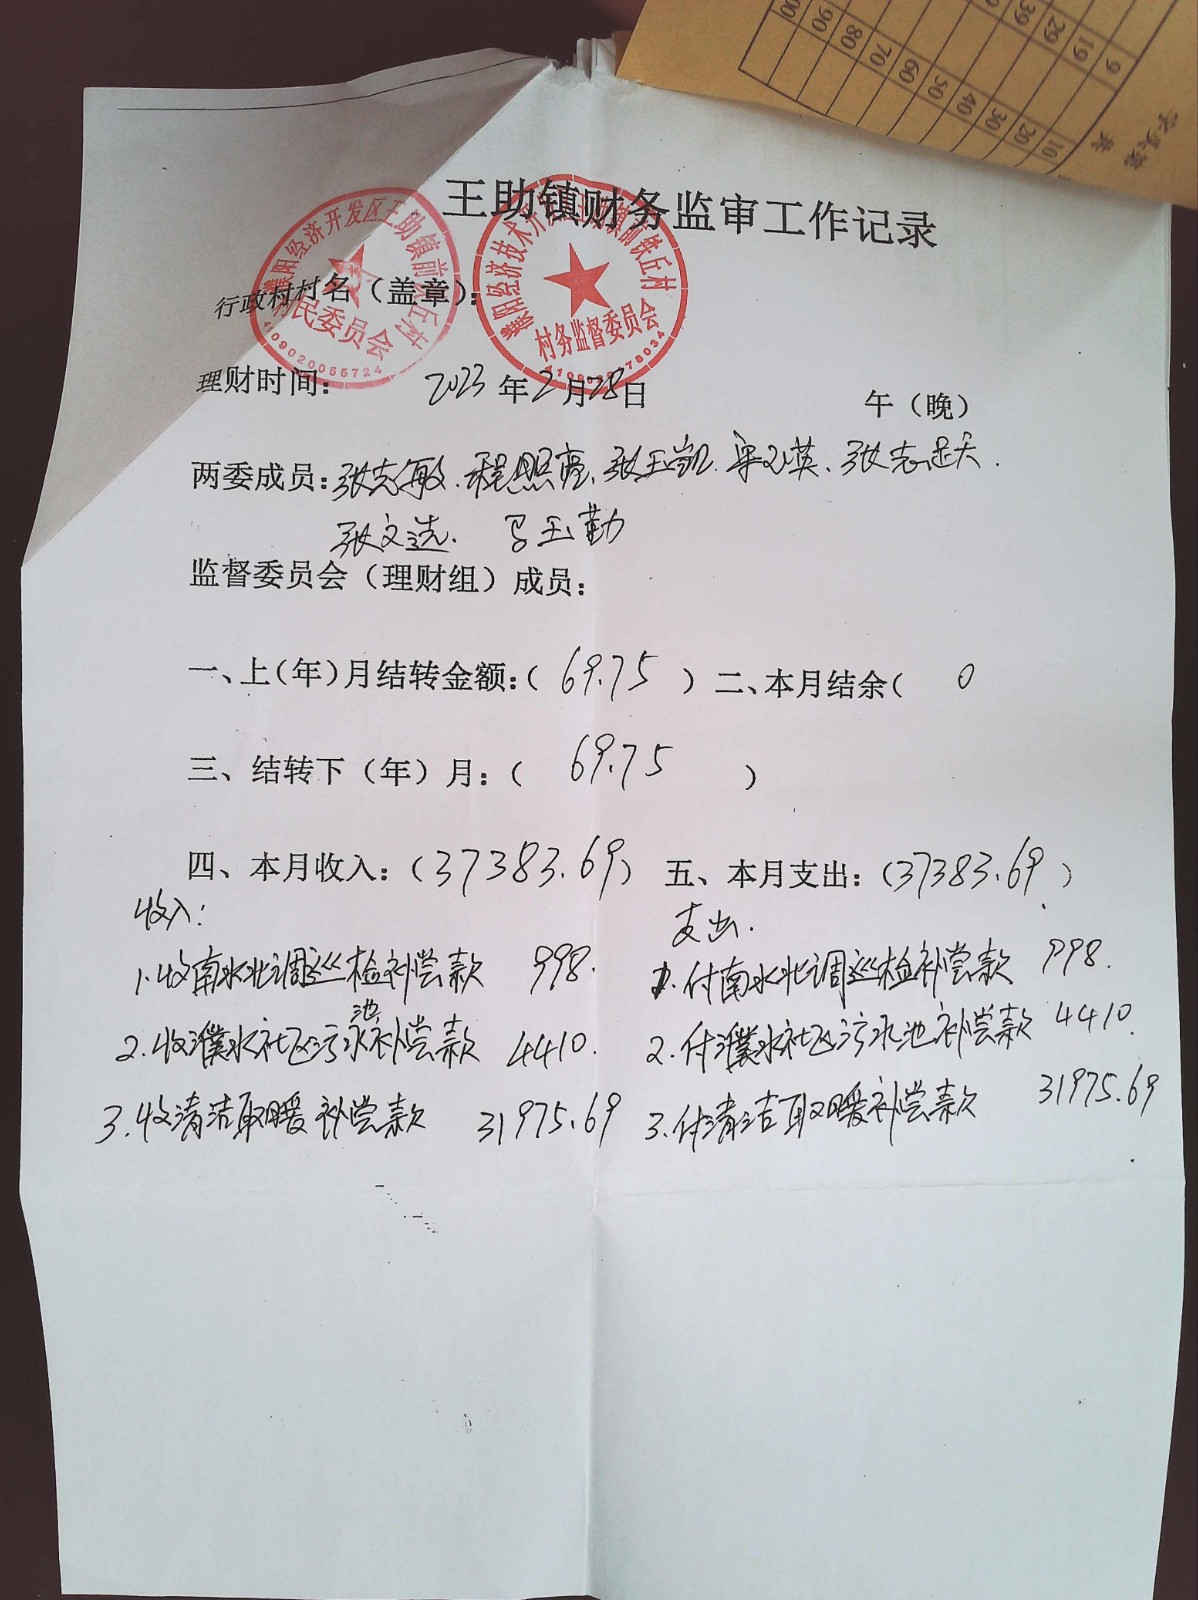 9
19
29
39
10
20
30
40
50
60
70
80
90
共
王助镇财务监审工作记录
濮阳经济开发区王助镇前铁丘村
村民委员会
09020055724
濮阳经济技术开发区王助镇前铁丘村
村务监督委员会
行政村村名（盖章）：
理财时间： 2023年2月28日 午（晚）
两委成员：张志敏、程照亮、张玉凯、宋义英、张志廷
张文选、马玉勤
监督委员会（理财组）成员：
一、上（年）月结转金额：（ 69.75 ）二、本月结余（ 0
三、结转下（年）月：（ 69.75 ）
四、本月收入：（37383.69） 五、本月支出：（37383.69）
收入： 支出.
1.收南水北调巡检补偿款 998. 1.付南水北调巡检补偿款 998.
2.收濮水社区污水池补偿款 4410. 2.付濮水社区污水池补偿款 4410.
3.收清洁取暖补偿款 31975.69 3.付清洁取暖补偿款 31975.69